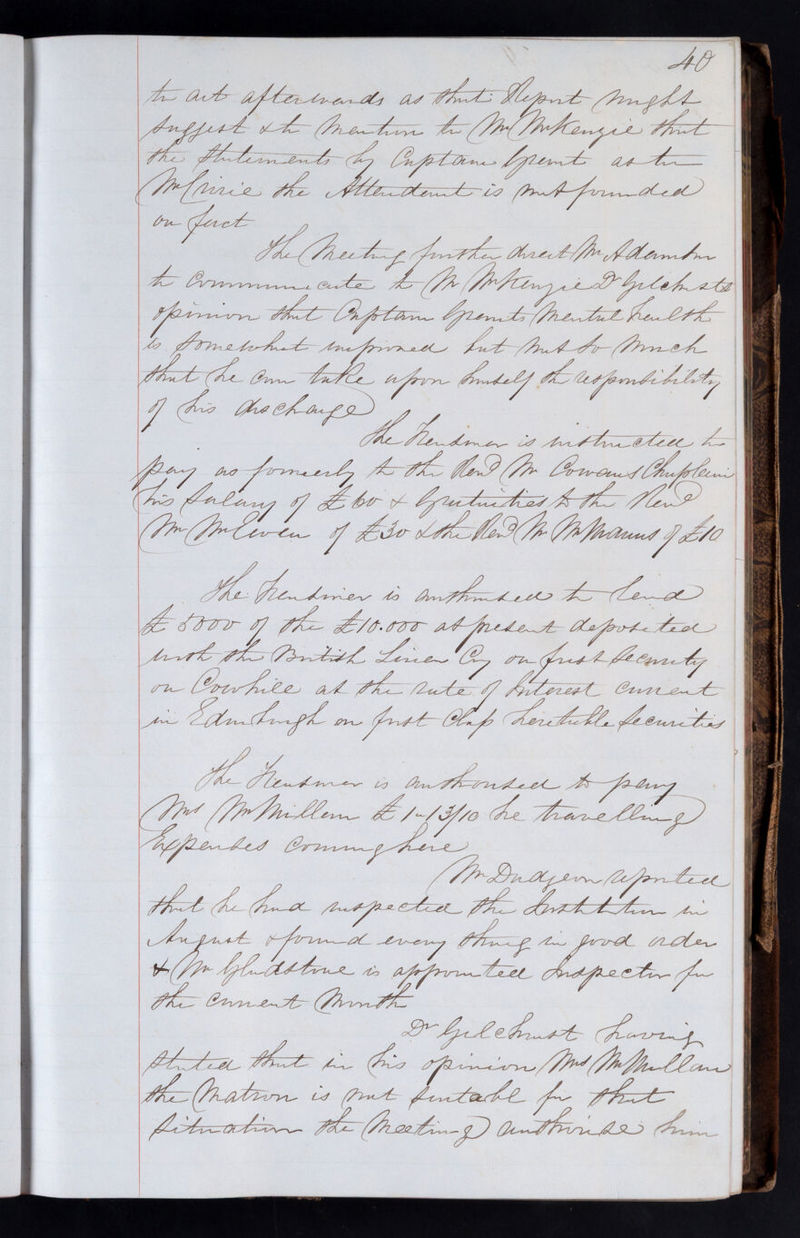 40
to act afterwards as that Report might
suggest & to mention to Mr McKenzie that
the Statements by Captain Grant as to
McCririe the Attendant is not founded
on fact
The Meeting further direct Mr Adamson
to communicate to Mr McKenzie Dr Gilchrists
opinion that Captain Grants Mental health
is somewhat improved but not so much
that he can take upon himself the responsibility
of his discharge
The Treasurer is instructed to
pay as formerly to the Revd Mr Cowans Chaplain
his Salary of £60 & Gratuities to the Revd
Mr McEwen of £30 & the Revd Mr McManus of £10
The Treasurer is authorised to lend
£5000 of the £10.000 at present deposited
with the British Linen Coy on first Security
on Cowhill at the rate of Interest current
in Edinburgh on first Clap heretable Securities
The Treasurer is authorised to pay
Mrs McMillan £1"13/10 he travelling
Expenses coming here
Mr Dudgeon reported
that he had inspected the Institution in
August & found every thing in good order
& Mr Gladstone is appointed Inspector for
the current Month
Dr Gilchrist having
Stated that in his opinion Mrs McMillan
the Matron is not sutabl for that
Situation the Meeting authorise him